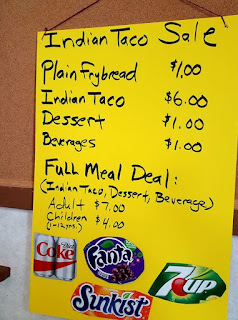 Indian Taco Sale
Plain Frybread $1.00
Indian Taco $6.00
Dessert $1.00
Beverages $1.00
Full Meal Deal:
(Indian Taco, Dessert, Beverage)
Adult $7.00
Children $4.00
(1-12yrs.)
Diet
Coke
Fanta
7UP
Sunkist